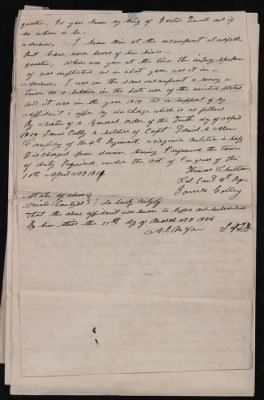 question, Do you know any thing of Foster Quall and if
so where is he.
Answer, I knew him at the incampment at norfolk
but have never heard of him since.
question, where was you at the time the injury spoken
of was inflicted and in what year was it in.
Answer, I was in the same incampment & serving a
tower as a soldier in the late war of the united states
and it was in the year 1814 and in support of my
affidavit I offer my discharge which is as follows
By virtue of a General order of the Tenth day of april
1814 James Colley a soldier of Capt
Company of the 4th Regiment Virginia militia is hereby
Discharged from Service Having Performed the tower
of duty Required under the act of Congress of the
10th April AD 1814
Col Com 4th Reg
James Colley
State of
to wit: do hereby certify
That the above affidavit was sworn to before and subscribed
By him this the 11th day of March AD 1856